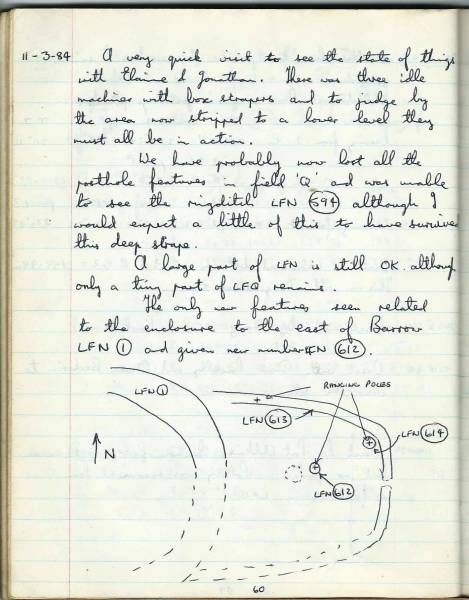 11-3-84 A very quick visit to see the state of things
with Elaine & Jonathan. There was three idle
machines with box scrapers and to judge by
the area now stripped to a lower level they
must all be in action.
We have probably now lost all the
posthole features in field 'Q' and was unable
to see the ringditch LFN 594 although I
would expect a little of this to have survived
this deep scrape.
A large part of LFN is still OK although
only a tiny part of LFQ remains.
The only new features seen related
to the enclosure to the east of Barrow
LFN 1 and given new number LFN 612.
RANGING POLES
LFN 1
LFN 613
LFN 614
N
LFN 612
60